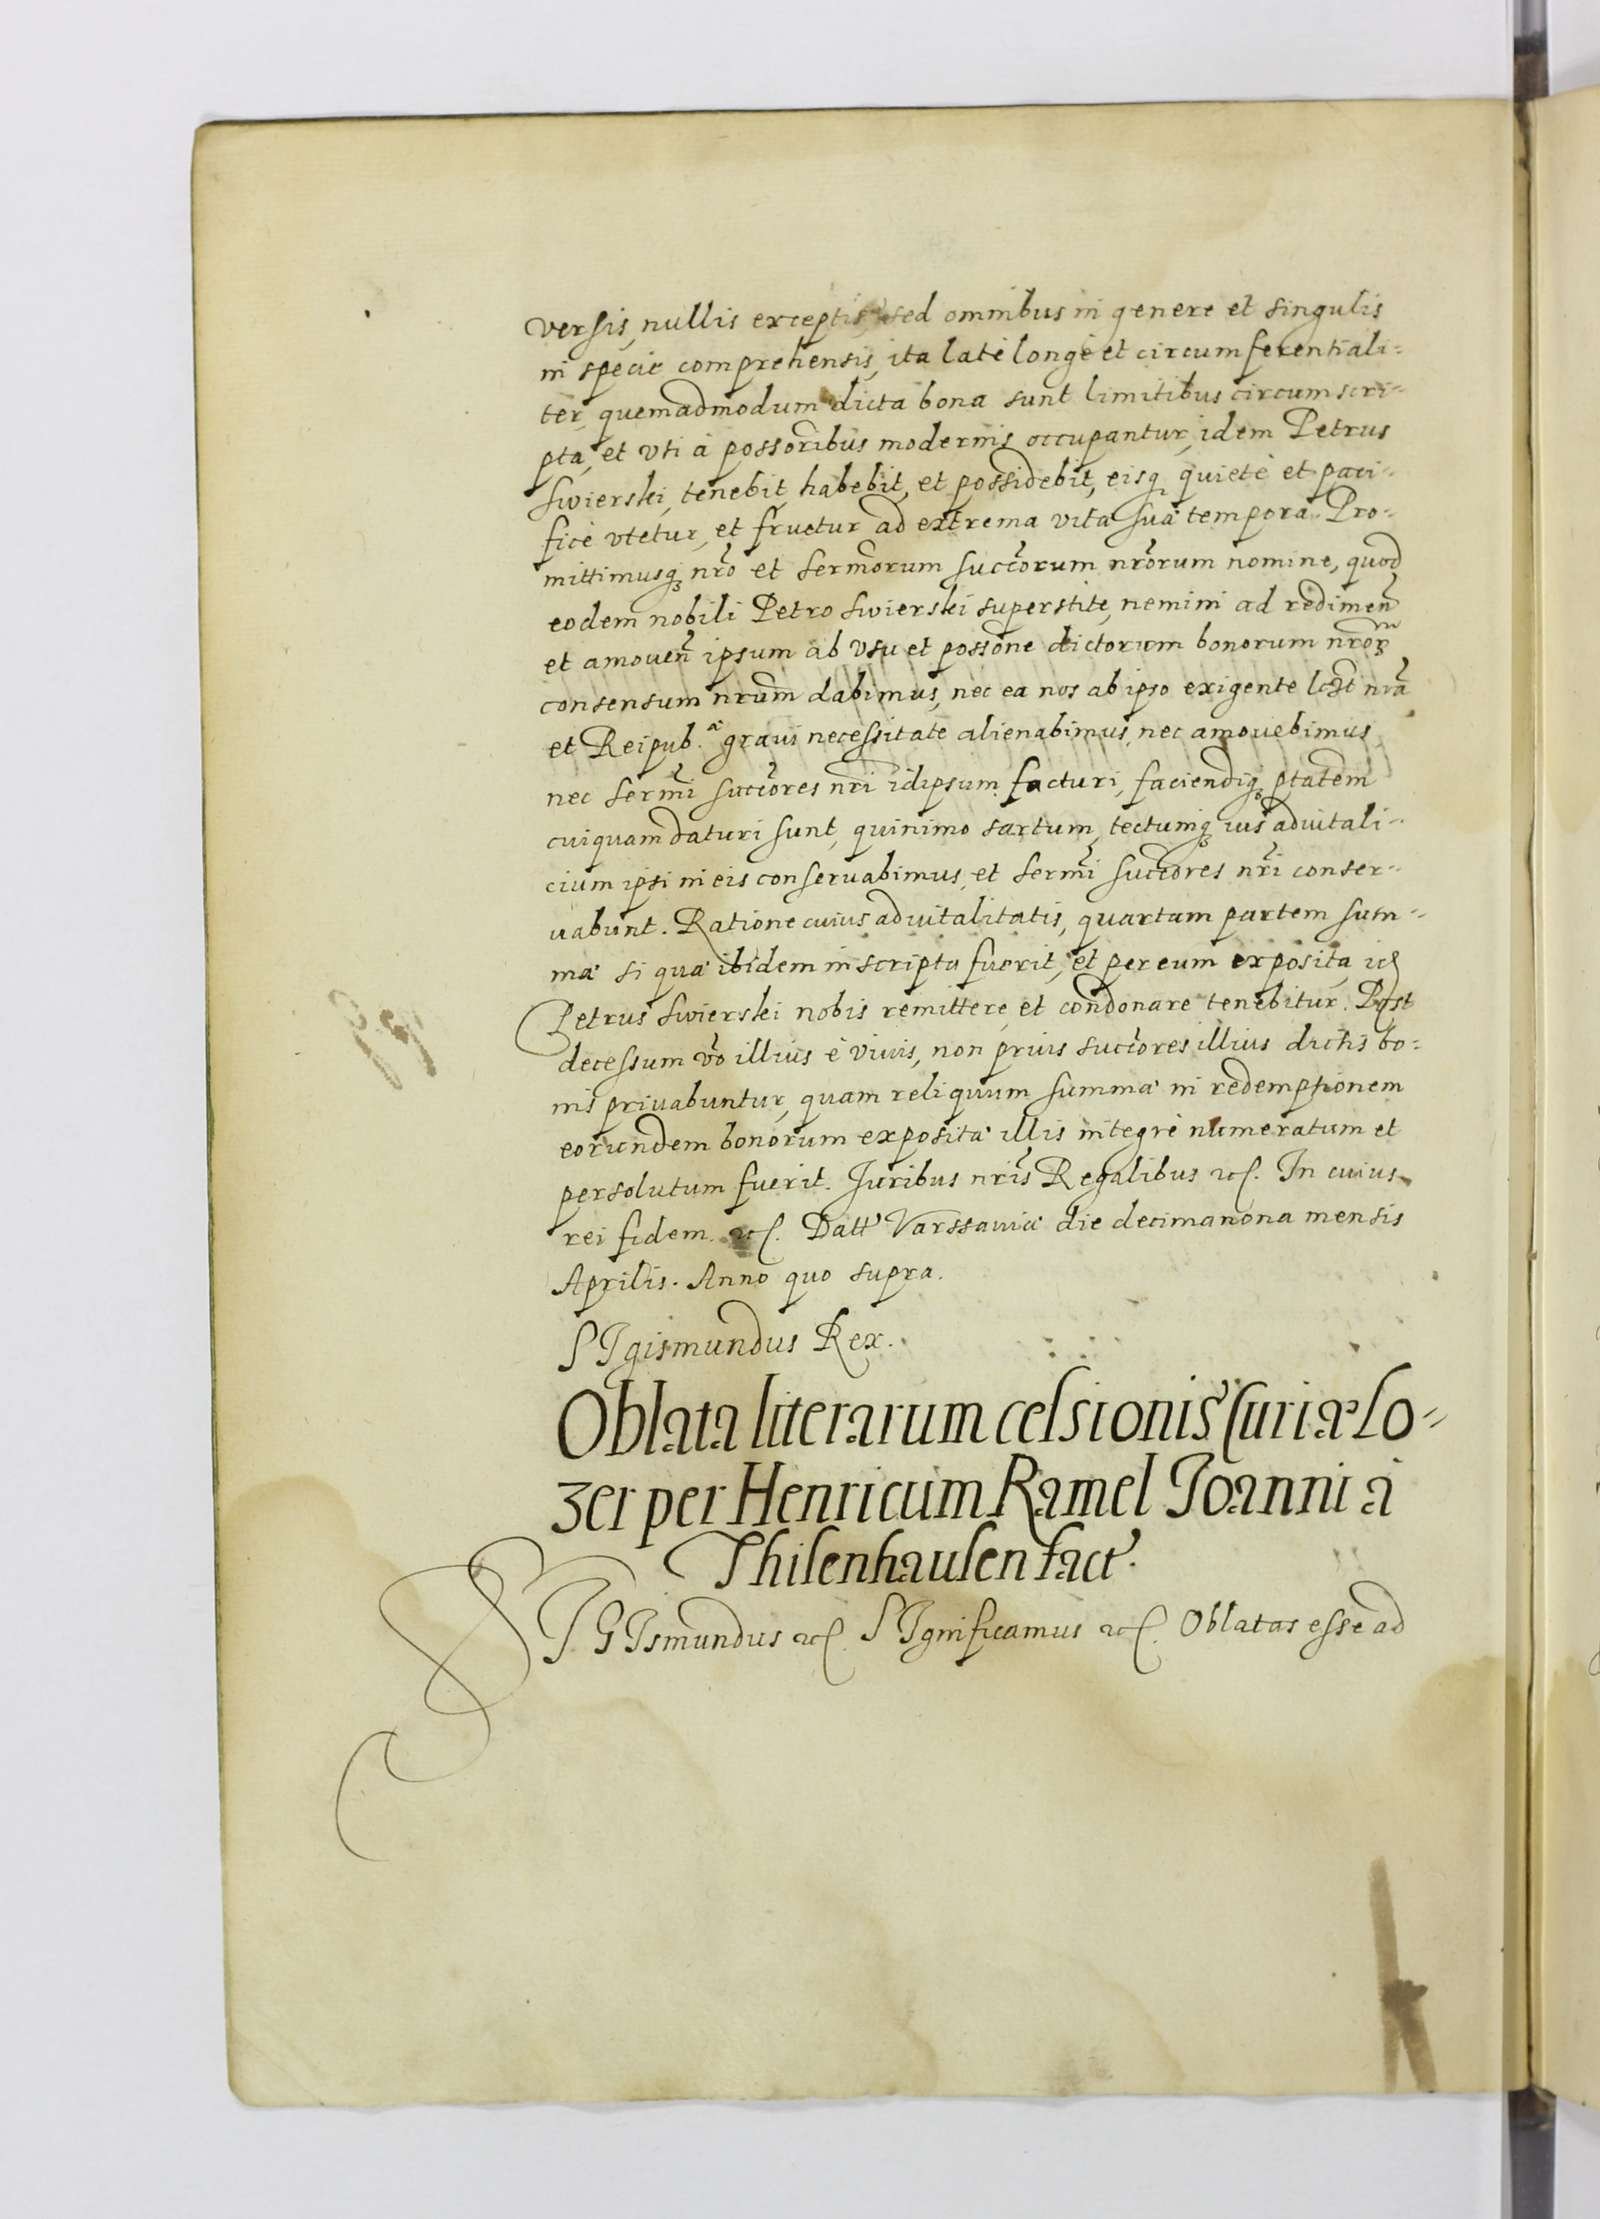 versis, nullis exceptis, sed omnibus in genere et singulis
in specie comprehensis, ita latè longè et circumferentiali-
ter, quemadmodum dicta bona sunt limitibus circumscri-
pta, et vti à possoribus modernis occupantur, idem Petrus
Swierski, tenebit, habebit, et possidebit, eisq quietè et paci-
ficè vtetur, et fruetur ad extrema vitæ suæ tempora. Pro-
mittimusq nro et sermorum succorum nrorum nomine, quod
eodem nobili Petro Swierski superstite, nemini ad redimen
et amouen ipsum ab vsu et possone dictorum bonorum nror
consensum nrum dabimus, nec ea nos ab ipso exigente nra
et Reipub. graui necessitate alienabimus, nec amouebimus,
nec sermi succores nri idipsum facturi, faciendiq ptatem
cuiquam daturi sunt, quinimo sartum, tectumq ius aduitali-
cium ipsi in eis conseruabimus, et sermi succores nri conser-
uabunt. Ratione cuius aduitalitatis, quartam partem sum-
mæ si quæ ibidem inscripta fuerit, et per eum exposita, id
Petrus Swierski nobis remittere, et condonare tenebitur. Post
decessum vo illius è viuis, non prius succores illius dictis bo-
nis priuabuntur, quam reliquum summæ in redemptionem
eorundem bonorum exposita illis integrè numeratum et
persolutum fuerit. Juribus nris Regalibus etc. In cuius
rei fidem etc. Datt Varssauiæ die decimanona mensis
Aprilis. Anno quo supra.
SIgismundus Rex.
Oblata literarum celsionis Curiæ Lo-
zer per Henricum Ramel Joanni à
Thilenhausen fact
SIGIsmundus etc. SIgnificamus etc. Oblatas esse ad